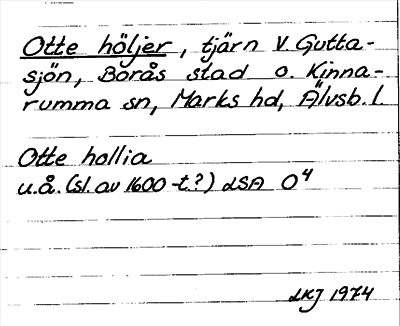 Otte höljer, tjärn V. Gutta-
sjön, Borås stad o. Kinna-
rumma sn, Marks hd, Älvsb. l.
Otte hollia
u.å. (sl. av 1600-t.?) LSA O4
LKJ 1974